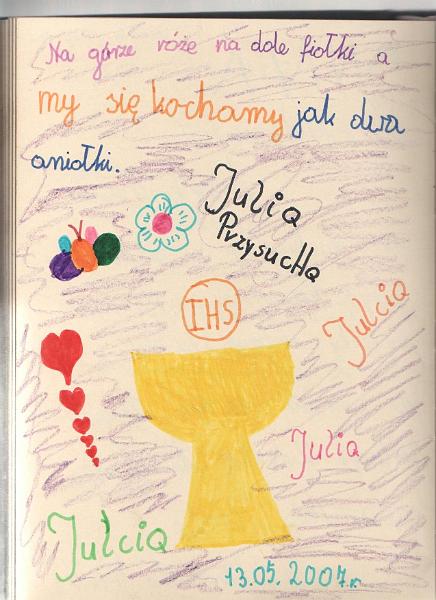 Na górze róże na dole fiołki a
my się kochamy jak dwa
aniołki.
Julia
Przysucha
IHS
Julcia
Julia
Julcia
13.05.2007r.